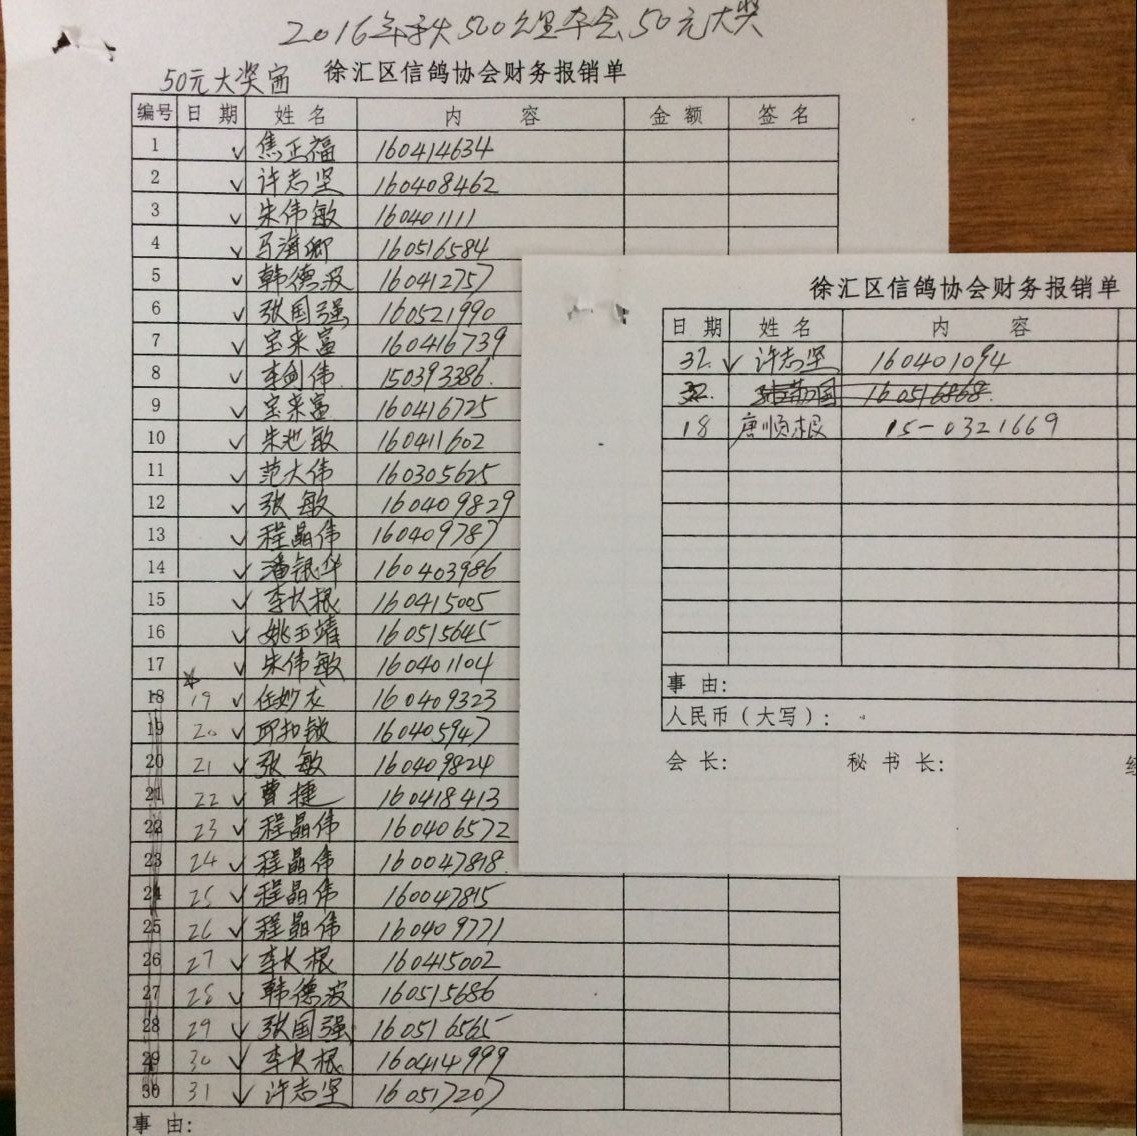 2016年秋500公里本会50元大奖
50元大奖
徐汇区信鸽协会财务报销单
编号 日 期 姓 名 内 容 金 额 签 名
1 ✓ 焦正福 160414634
2 ✓ 许志坚 160408462
3 ✓ 朱伟敏 160401111
4 ✓ 马海卿 160516584
5 ✓ 韩德波 160412757
6 ✓ 张国强 160521990
7 ✓ 宝来富 160416739
8 ✓ 李剑伟 150393386.
9 ✓ 宝来富 160416725
10 ✓ 朱池敏 160411602
11 ✓ 范大伟 160305625
12 ✓ 张敏 160409829
13 ✓ 程晶伟 160409787
14 ✓ 潘银华 160403986
15 ✓ 李长根 160415005
16 ✓ 姚玉靖 160515645
17 ✓ 朱伟敏 160401104
18 19 ✓ 任妙友 160409323
19 20 ✓ 邱扣锁 160405947
20 21 ✓ 张敏 160409824
21 22 ✓ 曹捷 160418413
22 23 ✓ 程晶伟 160406572
23 24 ✓ 程晶伟 160047818.
24 25 ✓ 程晶伟 160047815
25 26 ✓ 程晶伟 160409771
26 27 ✓ 李长根 160415002
27 28 ✓ 韩德波 160515686
28 29 ✓ 张国强 160516565
29 30 ✓ 李长根 160414999
30 31 ✓ 许志坚 160517207
事 由:
徐汇区信鸽协会财务报销单
日 期 姓 名 内 容
32. ✓ 许志坚 160401094
32. 160516868.
18 唐顺根 15-0321669
事 由:
人民币（大写）:
会 长: 秘 书 长: